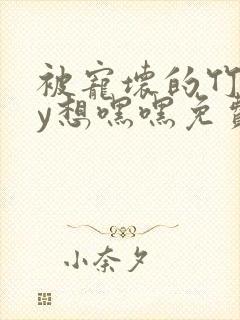 被寵壞的竹
y想嘿嘿免費
小奈夕